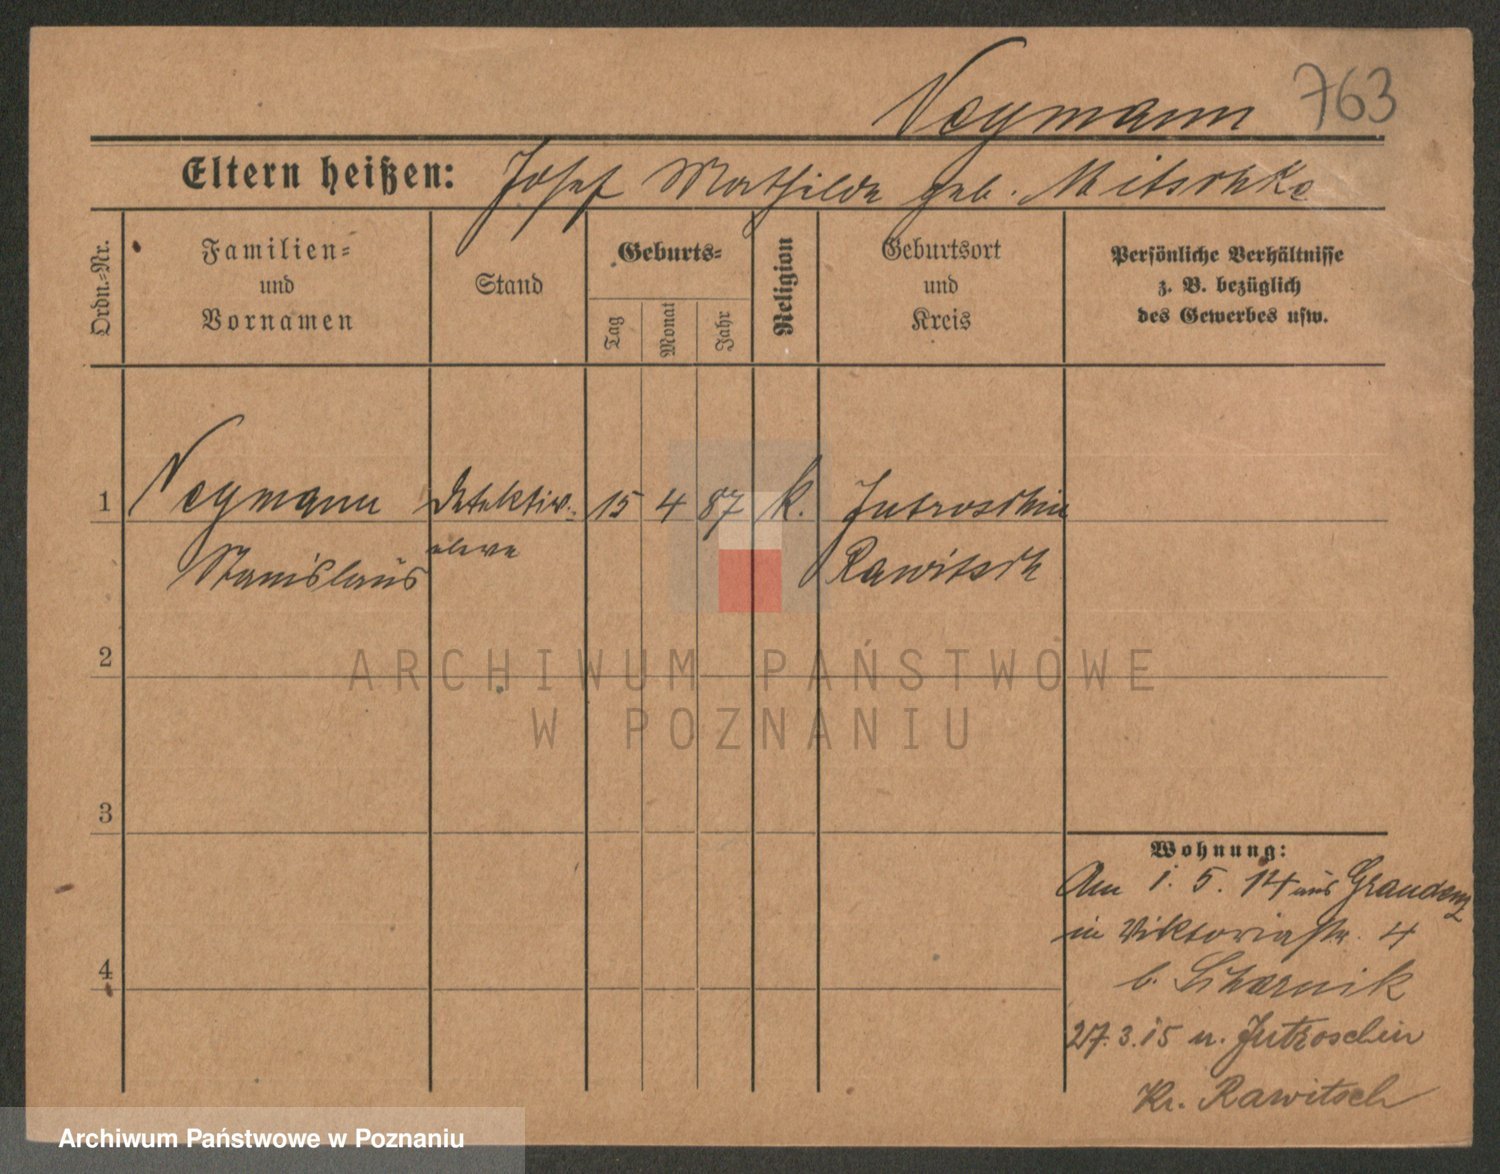 Neymann 763
Eltern heißen: Josef Mathilde geb. Mitschke
Ordn.-Nr.
Familien-
und
Vornamen
Stand
Geburts-
Tag
Monat
Jahr
Religion
Geburtsort
und
Kreis
Persönliche Verhältnisse
z. B. bezüglich
des Gewerbes usw.
1 Neymann Detektiv- 15 4 87 k. Jutroschin
Stanislaus Rawitsch
2
ARCHIWUM PAŃSTWOWE
W POZNANIU
3
4
Wohnung:
Am 1. 5. 14 aus Graudenz
in Viktoriastr. 4
b.
27.3.15 n. Jutroschin
Kr. Rawitsch
Archiwum Państwowe w Poznaniu